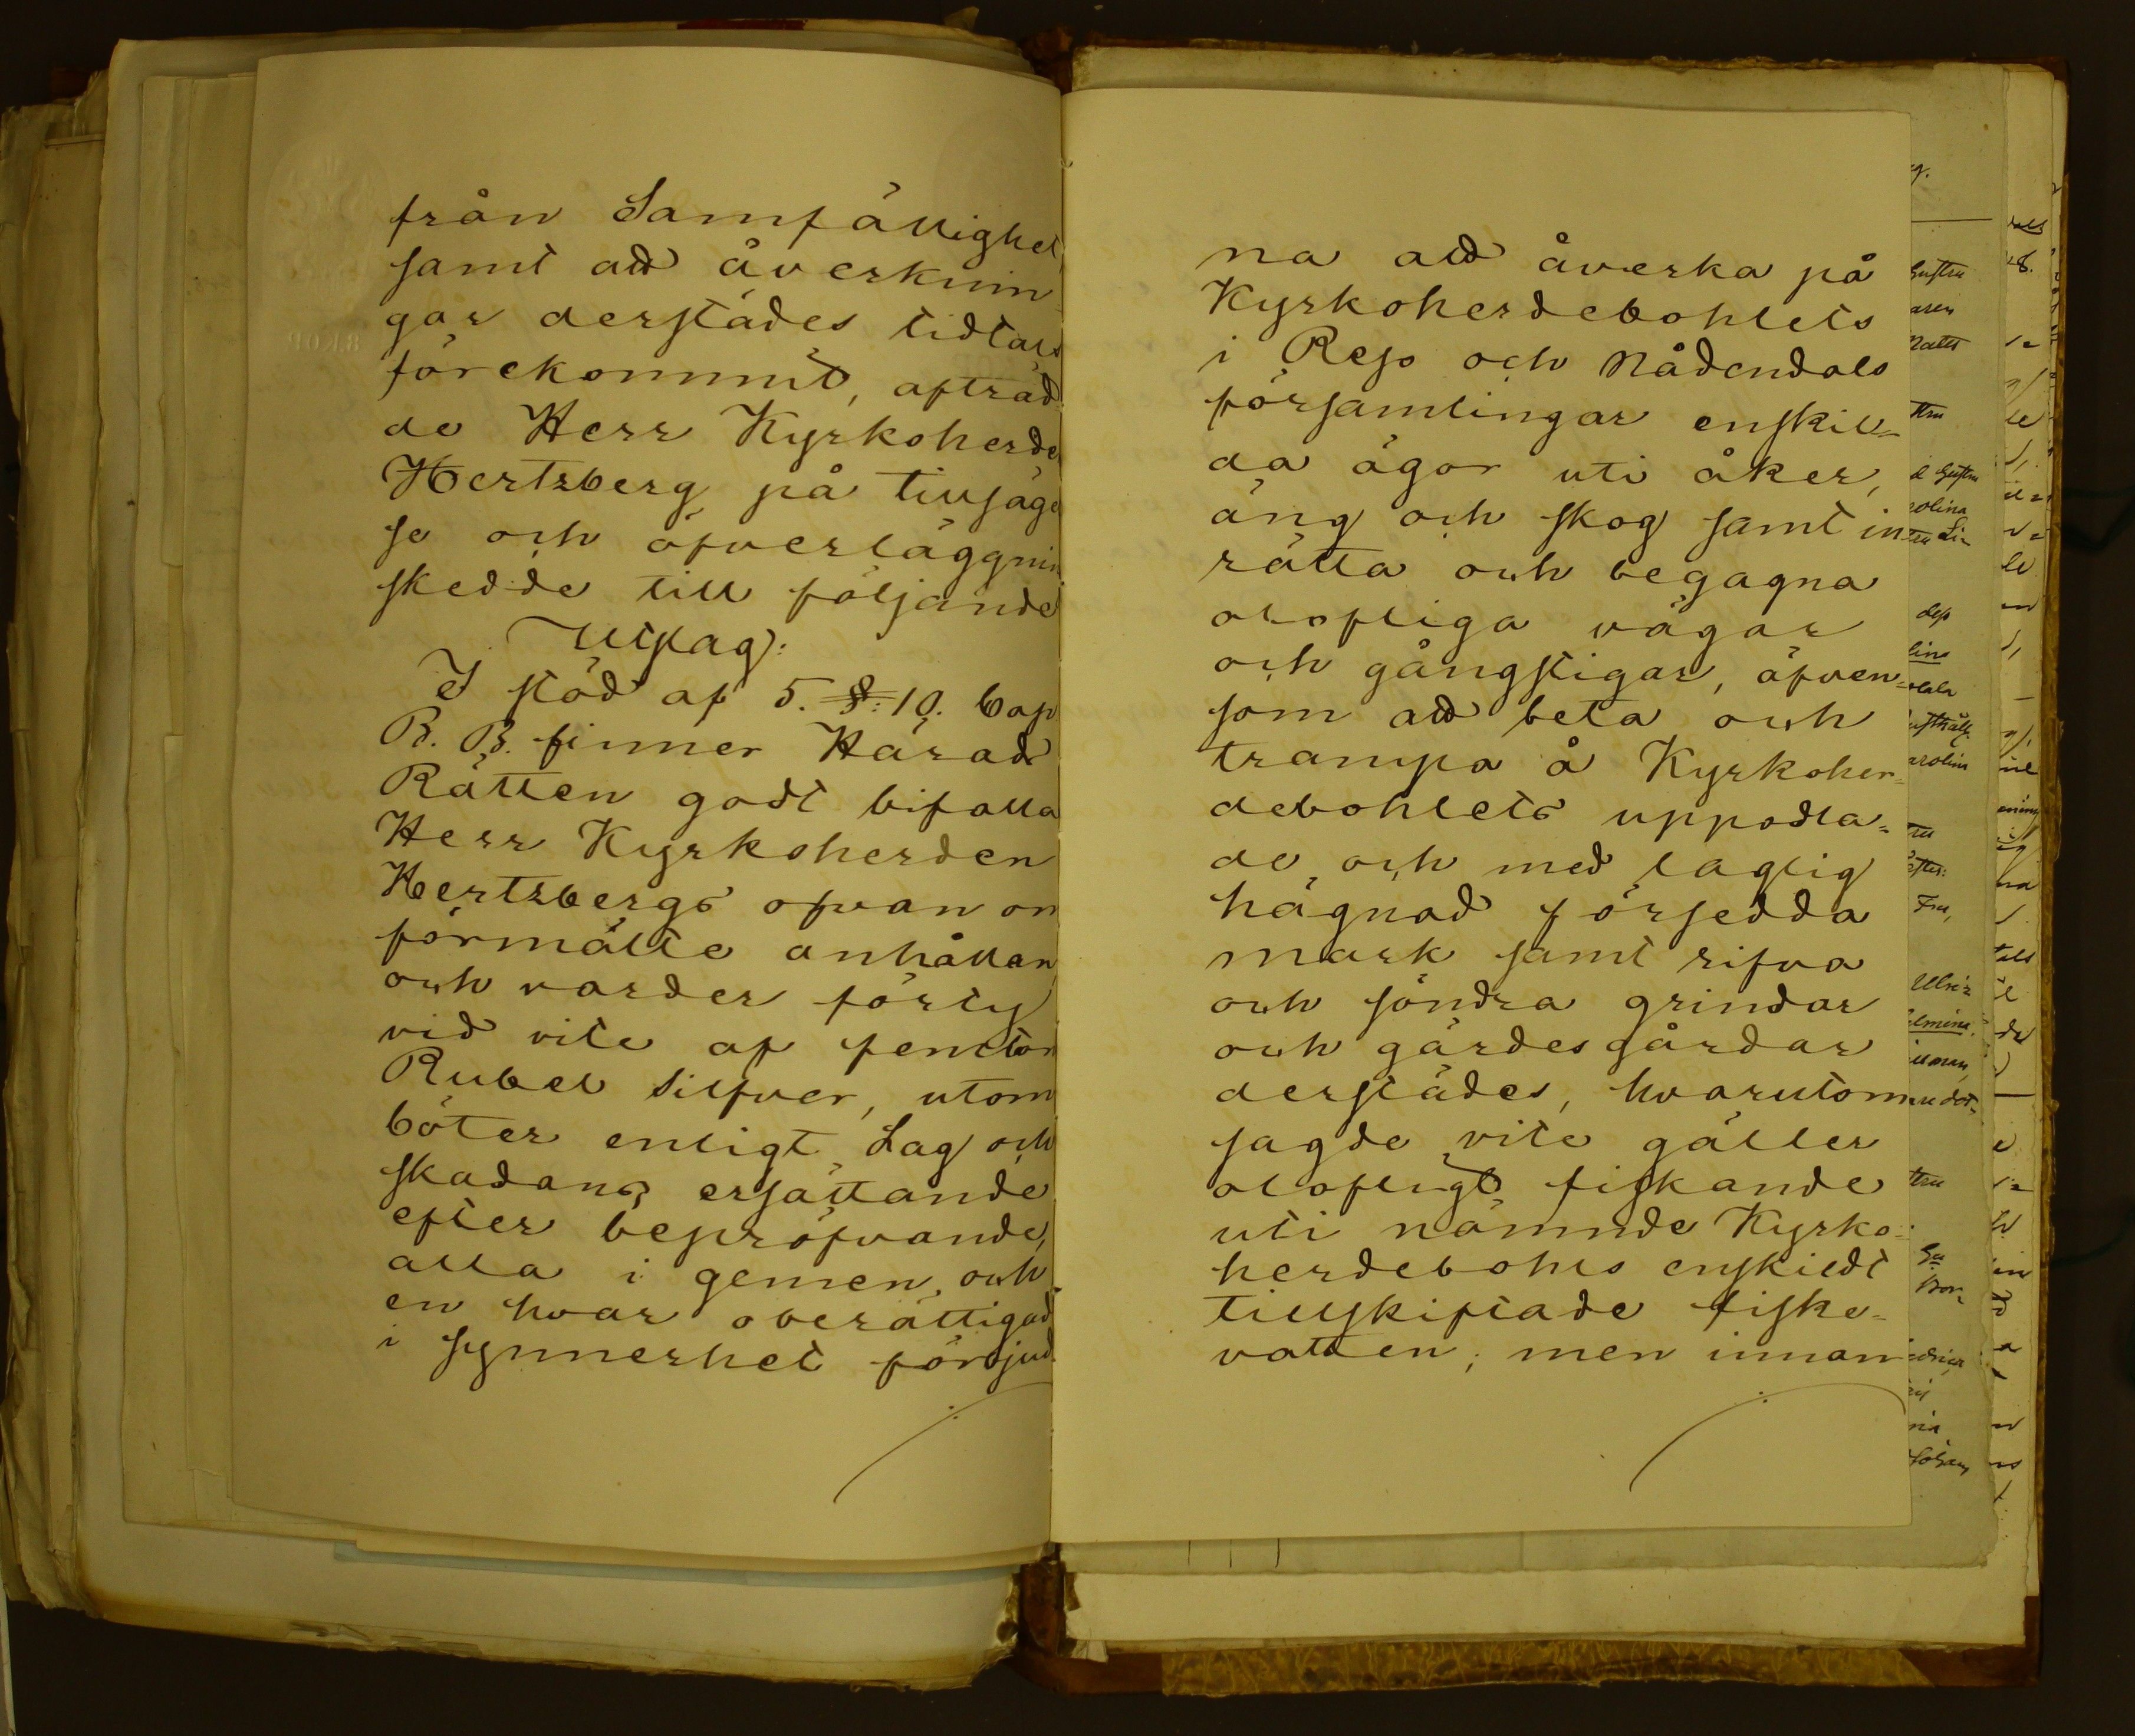 från Samfällighet
samt att åverknin
gar derstädes tidtals
förekommit, afträd
de Herr Kyrkoherde
Hertzberg på tillsäge
se och öfverläggnin
skedde till följande
Utslag:
I stöd af 5. §. 10. Cap
B. B. finner Härads
Rätten godt bifalla
Herr Kyrkoherden
Hertzbergs ofvan om
förmälte anhållan
och varder förty
vid vite af femton
Rubel Silfver, utom
böter enligt Lag och
skadans ersättande
efter bepröfvande,
alla i gemen, och
en hvar oberättigad
i synnerhet förbjud
na att åverka på
Kyrkoherdebohlets
i Reso och Nådendals
församlingar enskil=
da ägor uti åker,
äng och skog samt in
rätta och begagna
olofliga vägar
och gångstigar, äfven=
som att beta och
trampa å Kyrkoher=
debohlets uppodla=
de och med laglig
hägnad försedda
mark samt rifva
och söndra grindar
och gärdesgårdar
derstädes, hvarutom
sagde vite gäller
olofligt fiskande
uti nämnde Kyrko=
herdebohls enskildt
tillskiftade fiske=
vatten; men innan